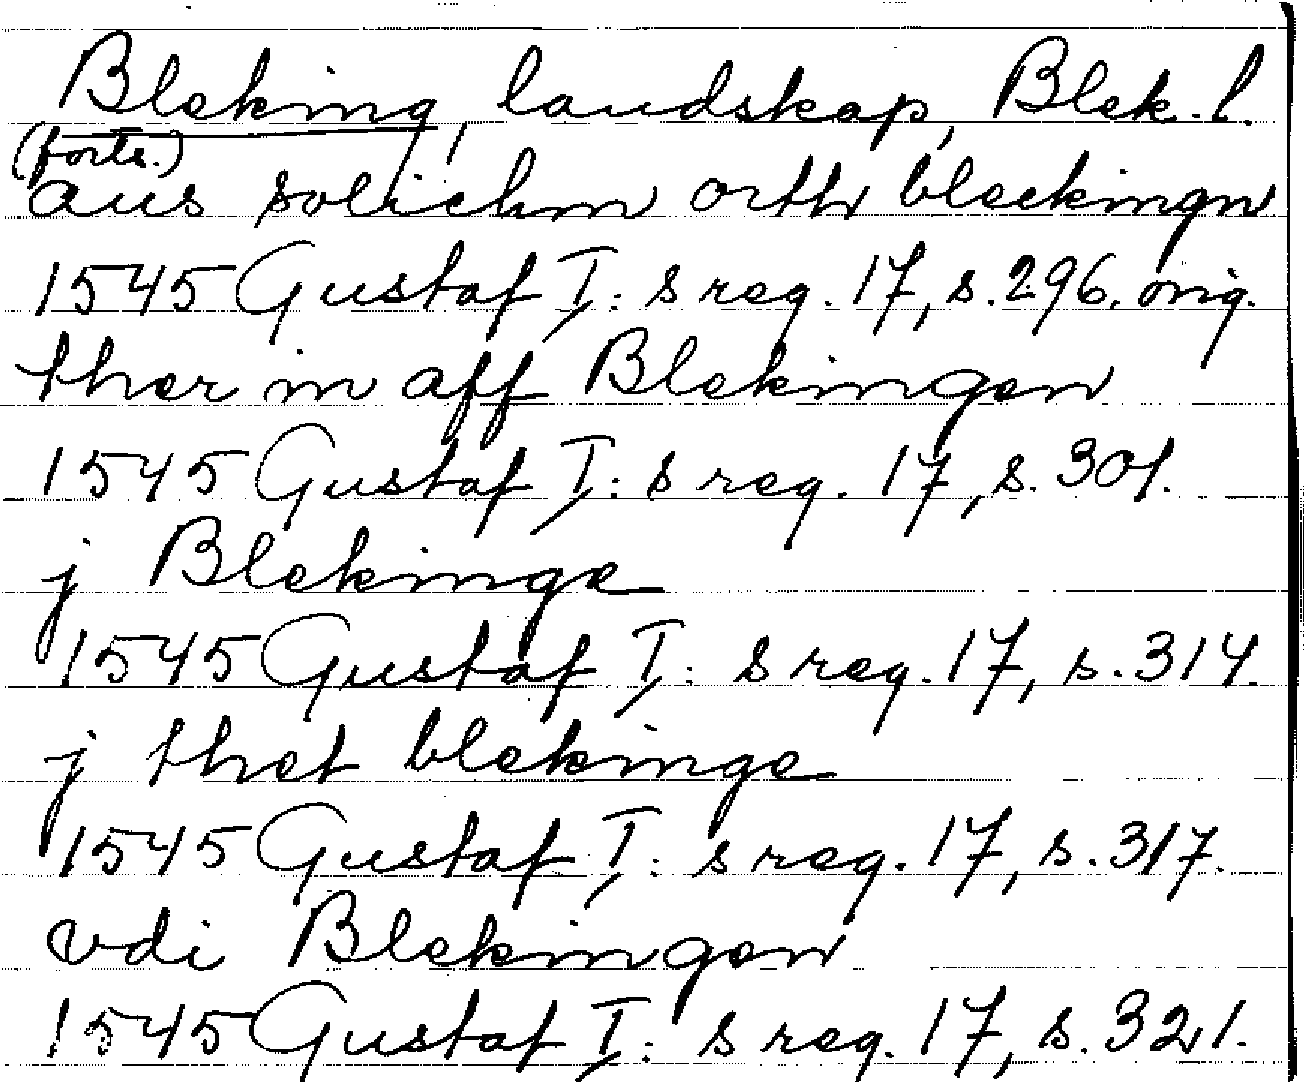 Bleking, landskap, Blek. l.
(forts.)
aus solichm orth bleckingn
1545 Gustaf I:s reg. 17, s. 296. orig.
ther in aff Blekingen
1545 Gustaf I:s reg. 17, s. 301.
j Blekinge
1545 Gustaf I:s reg. 17, s. 314.
j thet blekinge
1545 Gustaf I:s reg. 17, s. 317.
vdi Blekingen
1545 Gustaf I:s reg. 17, s. 321.